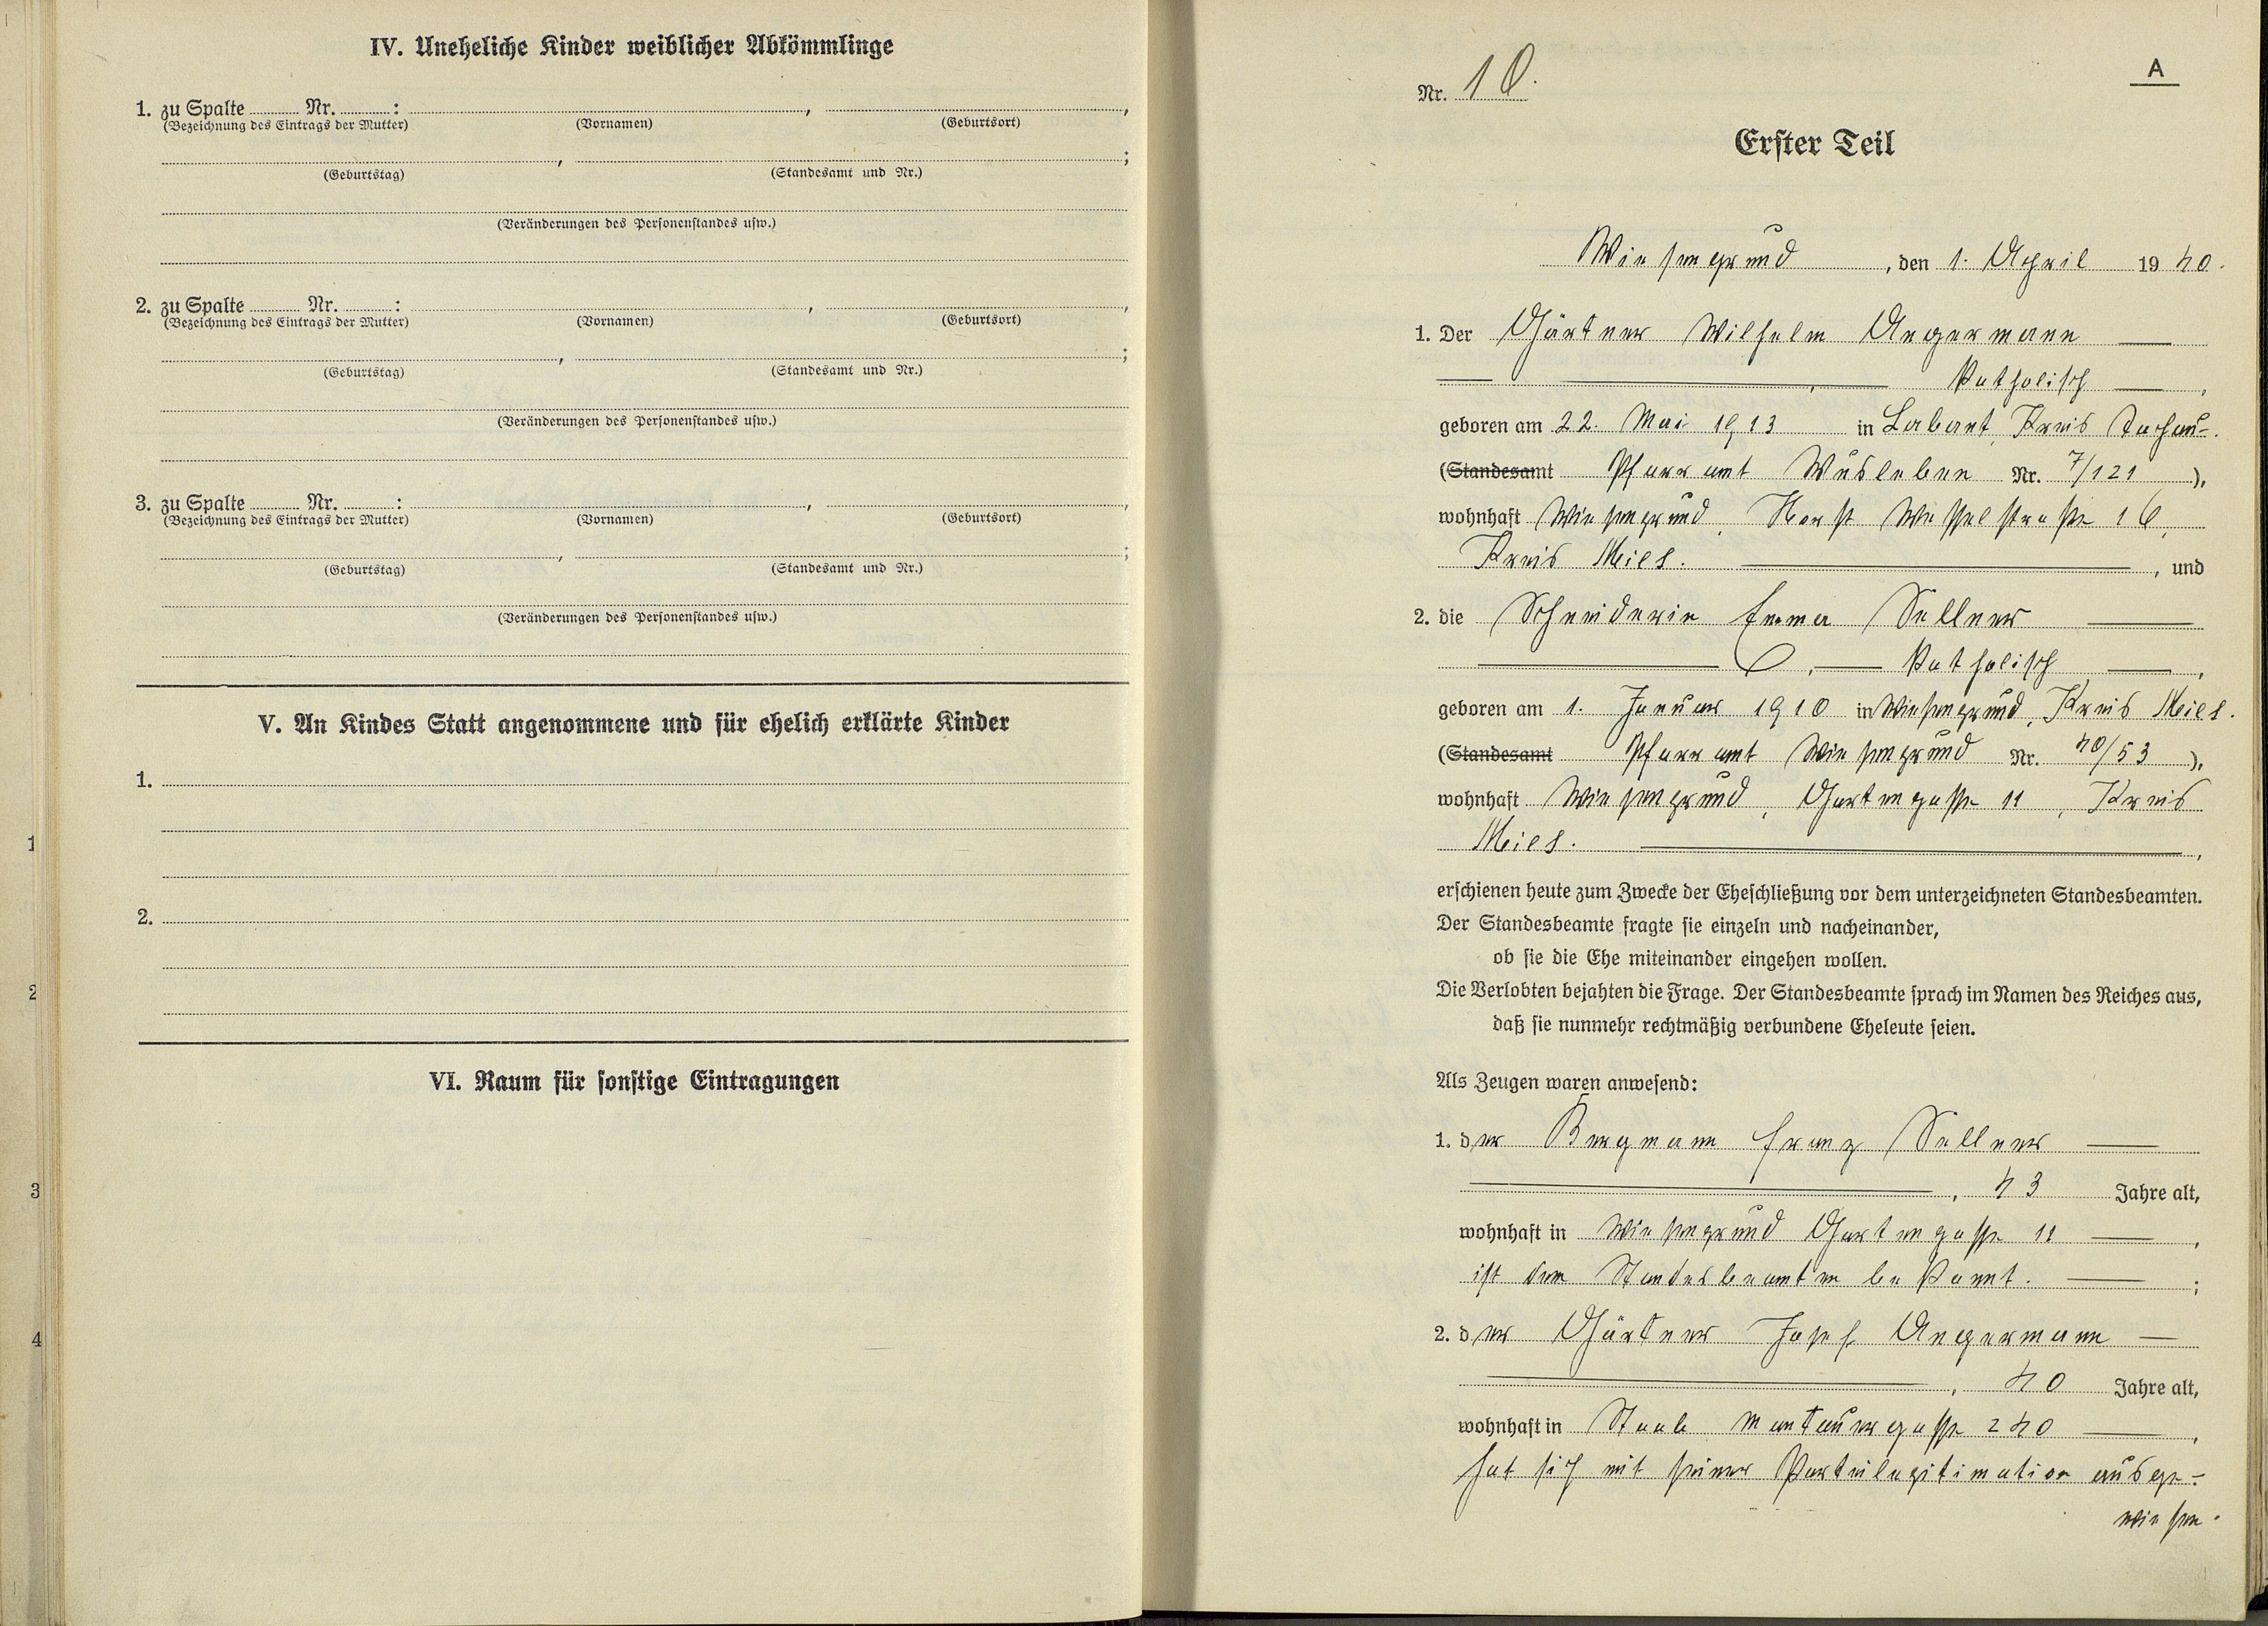 IV. Uneheliche Kinder weiblicher Abkömmlinge
1. zu Spalte Nr. : , ,
(Bezeichnung des Eintrags der Mutter) (Vornamen) (Geburtsort)
, ;
(Geburtstag) (Standesamt und Nr.)
(Veränderungen des Personenstandes usw.)
2. zu Spalte Nr. : , ,
(Bezeichnung des Eintrags der Mutter) (Vornamen) (Geburtsort)
, ;
(Geburtstag) (Standesamt und Nr.)
(Veränderungen des Personenstandes usw.)
3. zu Spalte Nr. : , ,
(Bezeichnung des Eintrags der Mutter) (Vornamen) (Geburtsort)
, ;
(Geburtstag) (Standesamt und Nr.)
(Veränderungen des Personenstandes usw.)
V. An Kindes Statt angenommene und für ehelich erklärte Kinder
1.
2.
VI. Raum für sonstige Eintragungen
1
2
3
4
A
Nr. 10.
Erster Teil
Wiesengrund, den 1. April 1940.
1. Der Gärtner Wilhelm Angermann
katholisch,
geboren am 22. Mai 1913 in Labant, Kreis Tachau.
(Standesamt Pfarramt Wusleben Nr. 7/121),
wohnhaft Wiesengrund, Horst Wesselstraße 16,
Kreis Mies. , und
2. die Schneiderin Emma Sellner
, katholisch,
geboren am 1. Januar 1910 in Wiesengrund, Kreis Mies.
(Standesamt Pfarramt Wiesengrund Nr. 40/53),
wohnhaft Wiesengrund, Gartengasse 11, Kreis
Mies. ,
erschienen heute zum Zwecke der Eheschließung vor dem unterzeichneten Standesbeamten.
Der Standesbeamte fragte sie einzeln und nacheinander,
ob sie die Ehe miteinander eingehen wollen.
Die Verlobten bejahten die Frage. Der Standesbeamte sprach im Namen des Reiches aus,
daß sie nunmehr rechtmäßig verbundene Eheleute seien.
Als Zeugen waren anwesend:
1. der Bergmann Franz Sellner
, 43 Jahre alt,
wohnhaft in Wiesengrund Gartengasse 11,
ist dem Standesbeamten bekannt. ;
2. der Gärtner Josef Angermann
, 40 Jahre alt,
wohnhaft in Staab Mantauergasse 240,
hat sich mit seiner Parteilegitimation ausge-
wiesen.